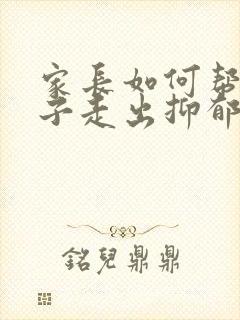 家長如何幇
子走出抑郁
銘兒鼎鼎